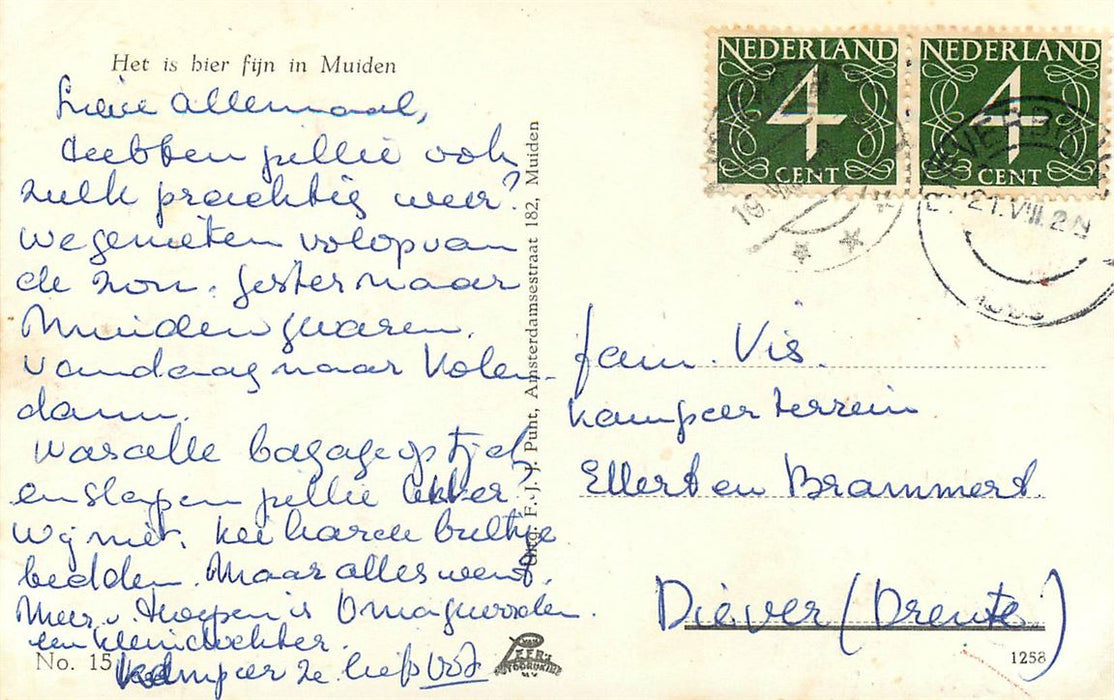 Het is hier fijn in Muiden
Lieve allemaal,
Hebben jullie ook
zulk prachtig weer?
We genieten volop van
de zon. Gister naar
Muiden gvaren.
vandaag naar Volen-
dam.
Was alle bagage op tijd
en slapen jullie lekker?
Wij niet. Kei harde bultige
bedden. Maar alles went.
Meer v. Hoepen is Oma geworden
een kleindochter.
No. 15
Kampeer ze liefs
Uitg. F. J. J. Punt, Amsterdamsestraat 182, Muiden
NEDERLAND
4
CENT
NEDERLAND
4
CENT
19.VIII
21.VIII.2N
fam. Vis.
Kampeerterrein
Ellert en Brammert.
Diever (Drente)
VAN LEER'S FOTODRUKIND. N.V.
1258